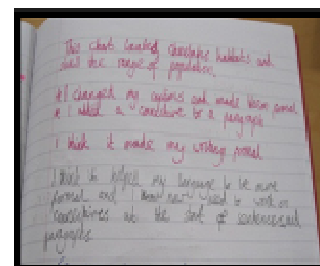 This chart
and the range of population.
I changed my captions and made them formal
I added a connective to a paragraph
I think it made my writing formal
I think to my language to be more
formal and I know now I need to work on
connectives at the start of sentences and
paragraphs